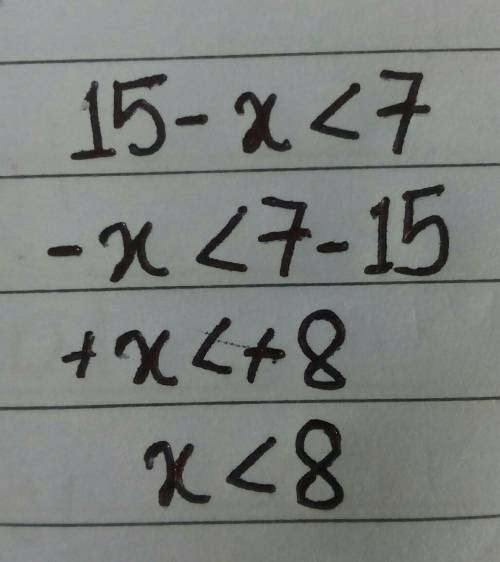 15 - x < 7
- x < 7 - 15
+ x < + 8
x < 8